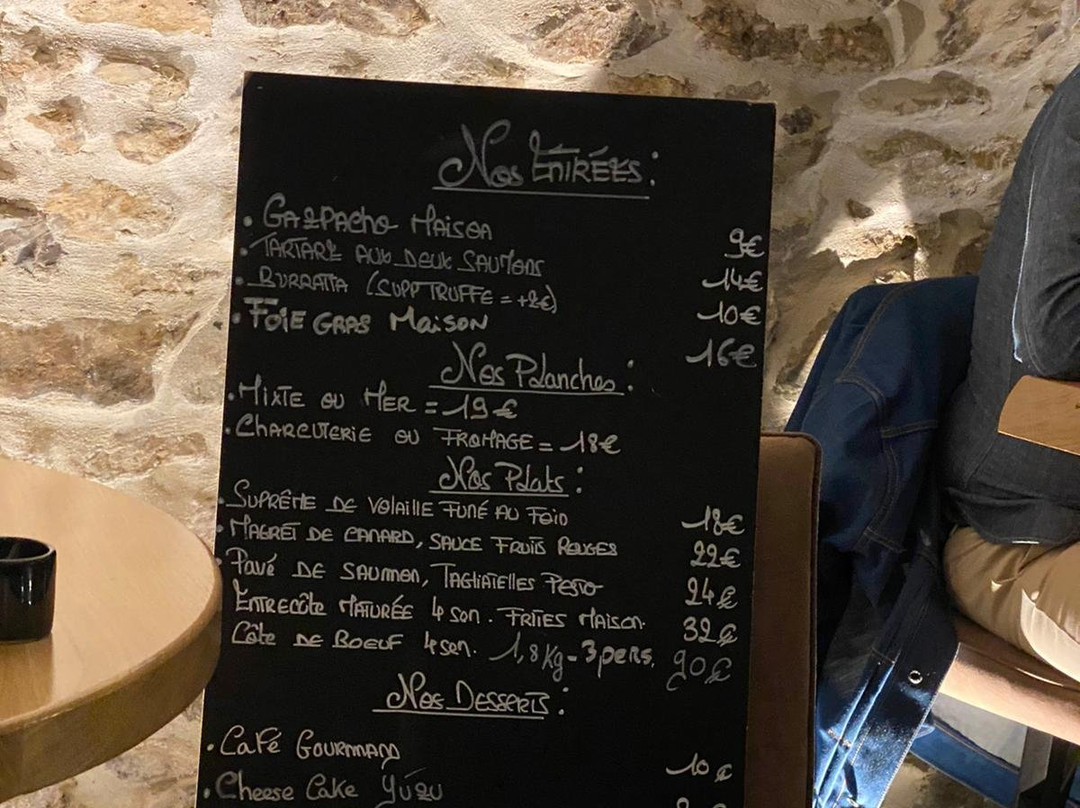 Nos ENTRÉES :
• GAZPACHO MAISON 9€
• TARTARE AUX DEUX SAUMONS 14€
• BURRATTA (SUPP TRUFFE = +2€) 10€
• FOIE GRAS MAISON 16€
Nos Planches :
• MIXTE OU MER = 19€
• CHARCUTERIE OU FROMAGE = 18€
Nos Plats :
• SUPRÊME DE VOLAILLE FUMÉ AU FOIN 18€
• MAGRET DE CANARD, SAUCE FRUITS ROUGES 22€
• Pavé DE SAUMON, TAGLIATELLES PESTO 24€
ENTRECÔTE MATURÉE 4 SEM. FRITES MAISON. 32€
CÔTE DE BOEUF 4 SEM. 1,8 Kg - 3 pers. 90€
Nos DESSERTS :
• CAFÉ GOURMAND 10€
• Cheese Cake yuzu